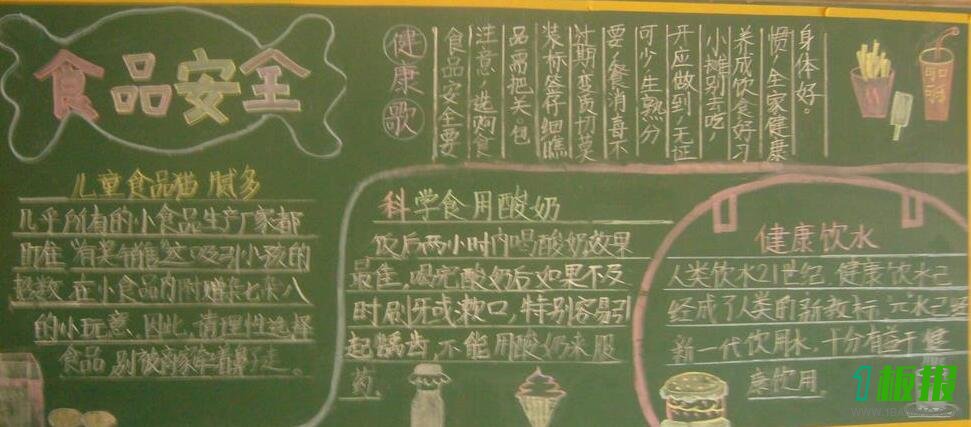 食品安全
健康歌
食品安全要
注意,选购食
品需把关。包
装标签仔细瞧
过期变质切莫
要,餐消毒不
可少,生熟分
开应做到,无证
小摊别去吃,
养成饮食好习
惯,全家健康
身体好。
儿童食品猫腻多
几乎所有的小食品生产厂家都
有奖销售这吸引小孩的
招数,在小食品内附赠杂七杂八
的小玩意,因此,请理性选择
食品,别被商家牵着鼻子走。
科学食用酸奶
饭后两小时内喝酸奶效果
最佳,喝完酸奶后如果不及
时刷牙或漱口,特别容易引
起龋齿,不能用酸奶来服
药。
健康饮水
人类饮水21世纪,健康饮水已
经成了人类的新教标,元水已经
新一代饮用水,十分有益于健
康饮用
1板报
WWW.1BANBAO.COM